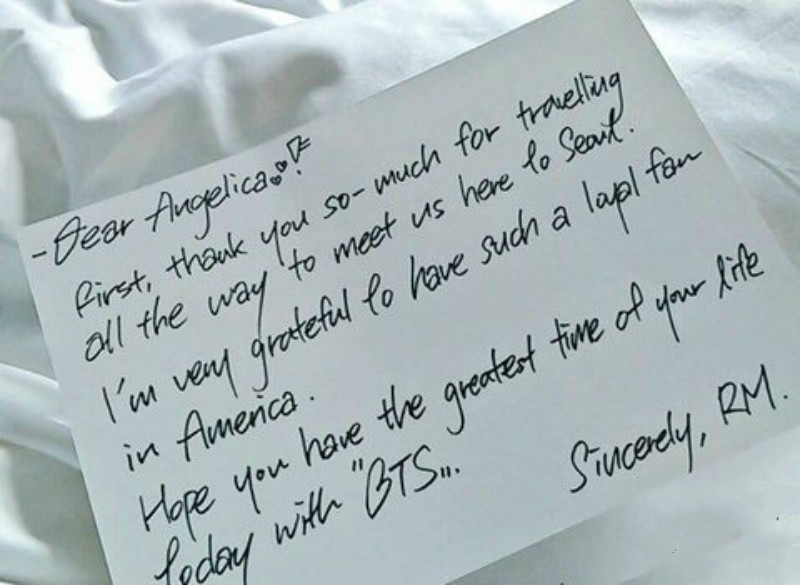 -Dear Angelica
first, thank you so-much for travelling
all the way to meet us here to Seoul.
I'm very grateful to have such a loyal fan
in America.
Hope you have the greatest time of your life
today with "BTS...
Sincerely, RM.